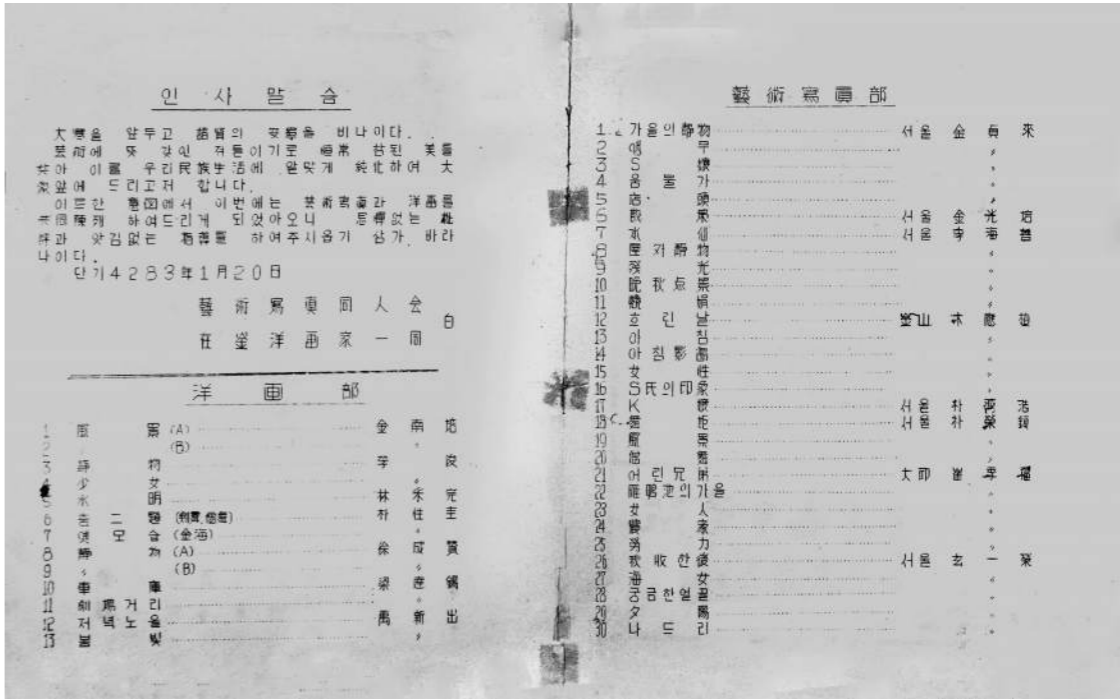 인 사 말 슴
大寒을 앞두고 諸賢의 安寧을 비나이다.
芸術에 뜻 갖인 저들이기로 恒常 참된 美를
찾아 이를 우리民族生活에 알맞게 純化하여 大
衆앞에 드리고저 합니다.
이르한 意図에서 이번에는 芸術寫眞과 洋畵를
陳列 하여드리게 되었아오니 없는
과 앗김없는 하여주시옵기 삼가 바라
나이다.
단기4283年1月20日
藝術寫眞同人会
在釜洋画家一同
白
洋画部
1 風景 (A) 金南培
2 〃 (B)
3 静物 李俊
4 少女 〃
5 水明 林禾完
6 二題 朴住圭
7 옛모습 (金海) 〃
8 静物 (A) 徐成賛
9 〃 (B) 〃
10 車庫 梁達錫
11 劇場거리 〃
12 저녁노을 禹新出
13 봄빛 〃
藝術寫眞部
1 가을의静物 서울 金貞來
2 앵무 〃
3 S嬢 〃
4 움물가 〃
5 店頭 〃
6 서울 金光培
7 水仙 서울 李海善
8 屋外静物 〃
9 残光 〃
10 晩秋点景 〃
11 〃
12 흐린날 釜山 林應植
13 아침 〃
14 아침 〃
15 女性 〃
16 S氏의印象 〃
17 K嬢 서울 朴
18 서울 朴榮
19 風景 〃
20 〃
21 어린兄弟 大邱 崔
22 雁鴨池의가을 〃
23 女人 〃
24 農家 〃
25 労力 〃
26 秋收한後 서울 玄一榮
27 海女 〃
28 궁금한얼골 〃
29 夕陽 〃
30 나드리 〃